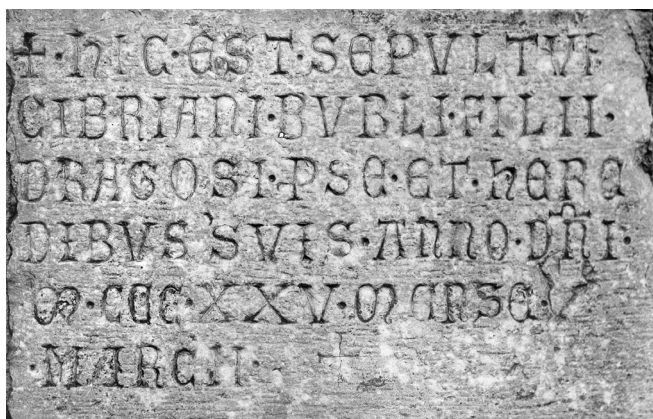 +·hIC·EST·SEPVLTVR
CIBRIANI·BVBLI·FILII·
DRAGOSI·PSE·ET·hERE
DIBVS SVIS·ANNO·DÑI·
M·CCC·XXV·MENSE
·MARCII·